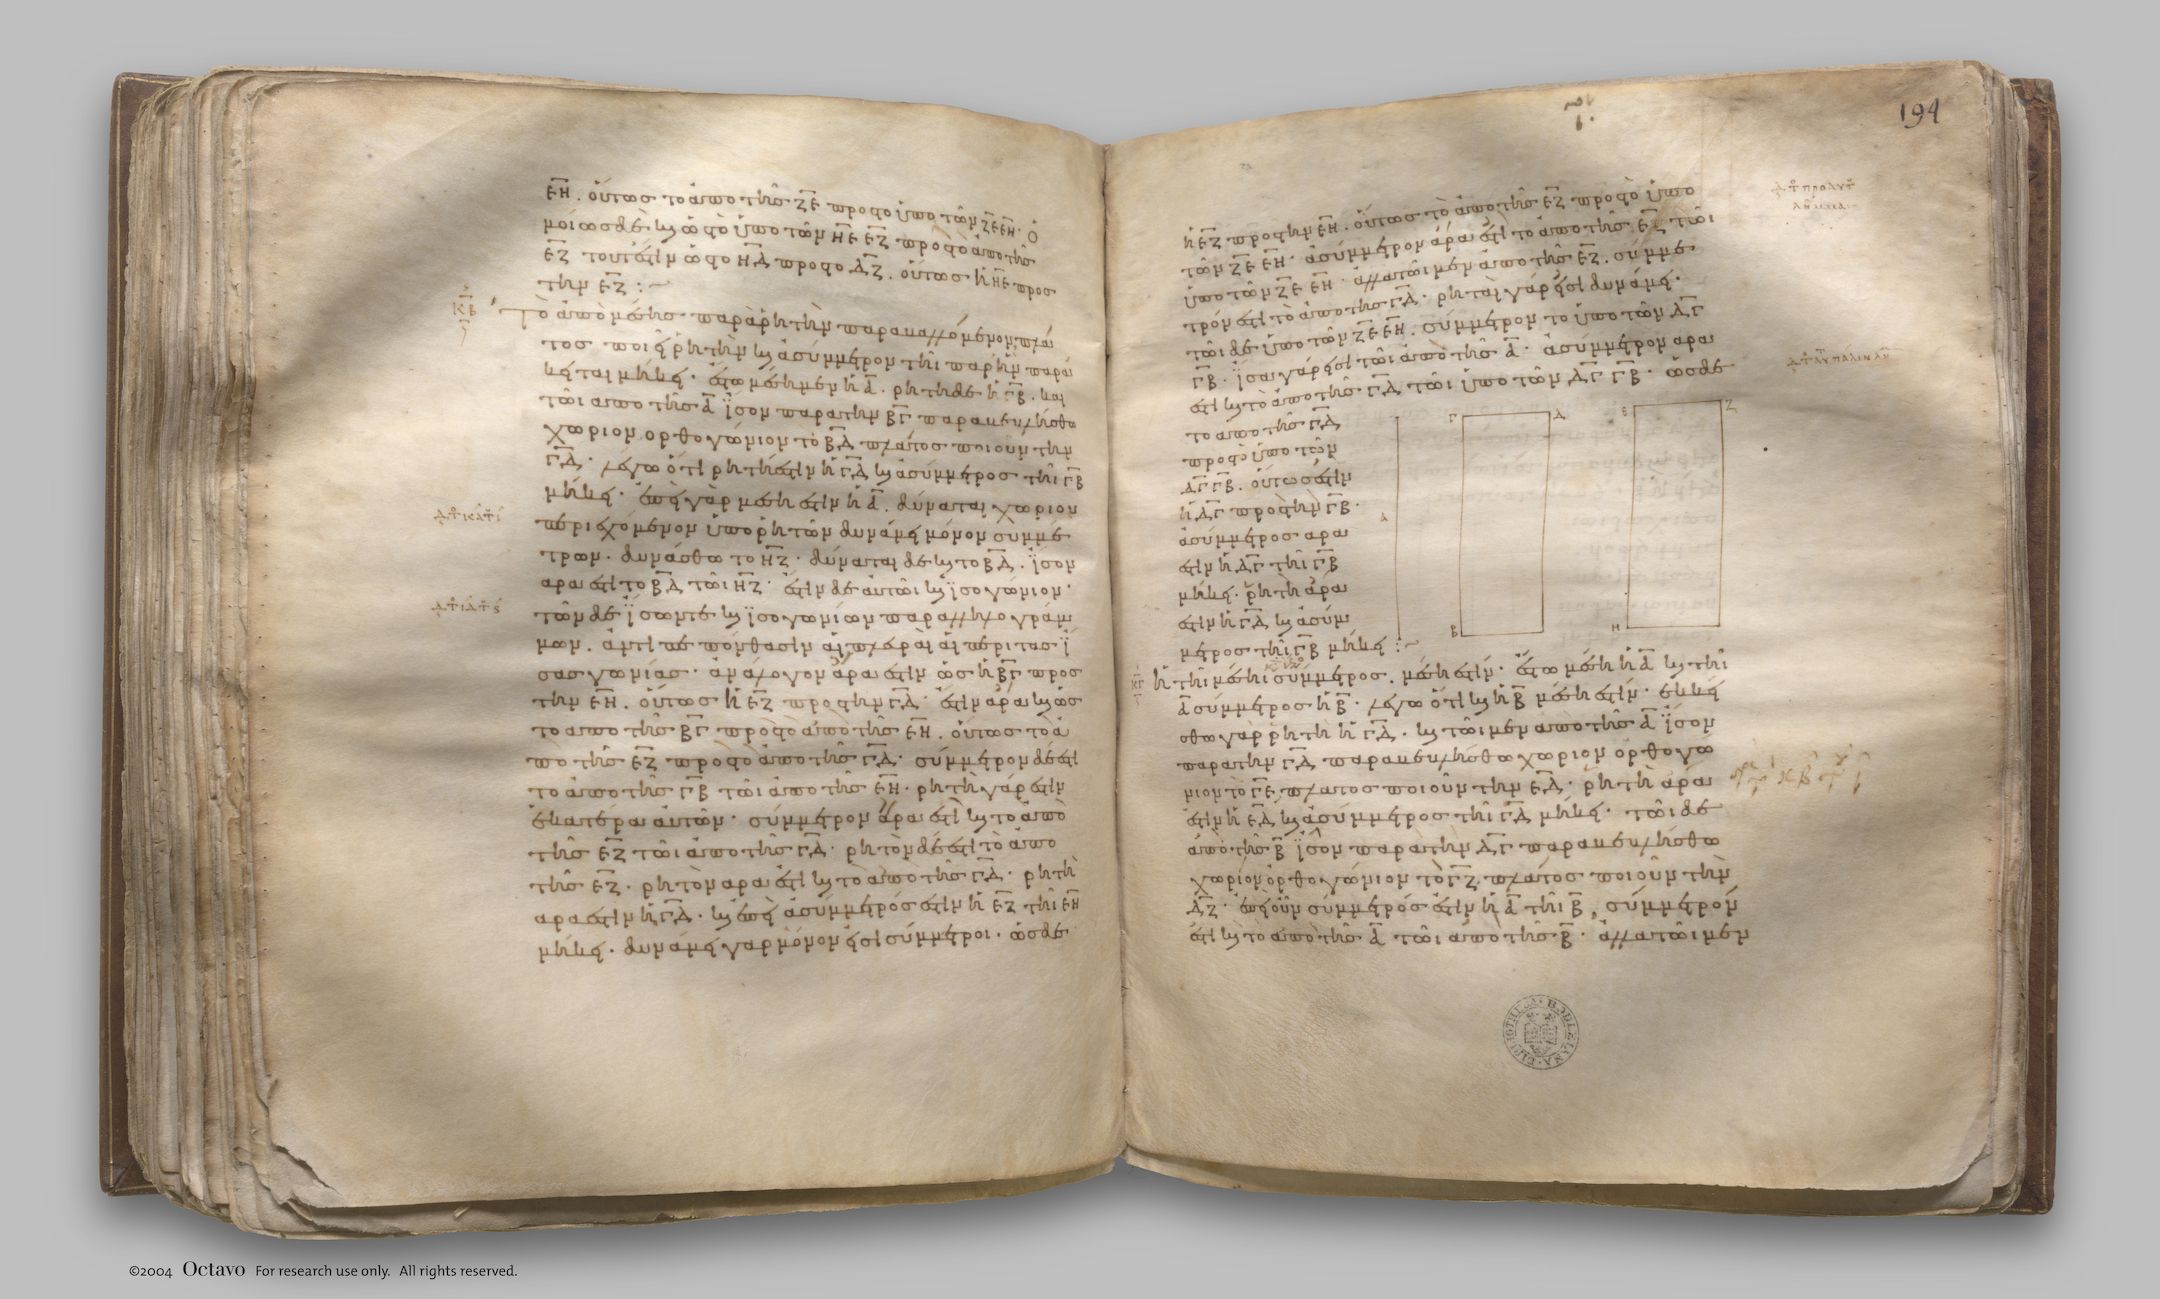 ΕΗ. οὕτως τὸ ἀπὸ τῆς ΖΕ πρὸς τὸ ὑπὸ τῶν ΖΕ ΕΗ. Ὁ
μοίως δὲ καὶ ὡς τὸ ὑπὸ τῶν ΗΕ ΕΖ πρὸς τὸ ἀπὸ τῆς
ΕΖ τουτέστιν ὡς τὸ ΗΔ πρὸς τὸ ΔΖ. οὕτως ἡ ΗΕ προς
την ΕΖ :~
ΚΒ Τὸ ἀπὸ μέσης παρὰ ῥητὴν παραβαλλόμενον, πλά
τος ποιεῖ ῥητὴν καὶ ἀσύμμετρον τῆι παρ' ἣν παρά
κειται μήκει. ἔστω μέση μὲν ἡ Α. ρητη δὲ ἡ ΓΒ. και
τῶι απο τῆς Α ἴσον παρα την ΒΓ παραβεβλήσθω
χωριον ορθογώνιον τὸ ΒΔ πλάτος ποιοῦν την
ΓΔ. λέγω ὅτι ρητή ἐστιν ἡ ΓΔ καὶ ἀσύμμετρος τῆι ΓΒ
μήκει. ἐπεὶ γὰρ μέση ἐστὶν ἡ Α. δύναται χωριον
περιεχόμενον ὑπὸ ῥητῶν δυνάμει μόνον συμμέ
τρων. δυνάσθω το ΗΖ. δύναται δὲ καὶ το ΒΔ. ἴσον
αρα ἐστὶ το ΒΔ τῶι ΗΖ. ἔστιν δὲ αὐτῶι καὶ ἰσογώνιον.
τῶν δὲ ἴσων τε καὶ ἰσογωνίων παραλληλογράμ
μων. ἀντιπεπόνθασιν αἱ πλευραὶ αἱ περι τας ἴ
σας γωνίας. ἀνάλογον ἄρα ἐστὶν ὡς ἡ ΒΓ προς
την ΕΗ. οὕτως ἡ ΕΖ προς την ΓΔ. ἔστιν ἄρα καὶ ὡς
το απο τῆς ΒΓ πρὸς τὸ ἀπὸ τῆς ΕΗ. οὕτως τὸ ἀ
πὸ τῆς ΕΖ προς τὸ ἀπὸ τῆς ΓΔ. σύμμετρον δέ ἐστι
το ἀπο τῆς ΓΒ τῶι ἀπο τῆς ΕΗ. ρητὴ γάρ ἐστιν
ἑκατέρα αὐτῶν. σύμμετρον ἄρα ἐστὶ καὶ το ἀπὸ
τῆς ΕΖ τῶι ἀπο τῆς ΓΔ. ρητὸν δέ ἐστι τὸ ἀπο
τῆς ΕΖ. ρητὸν αρα ἐστὶ καὶ το ἀπὸ τῆς ΓΔ. ρητὴ
αρα ἐστὶν ἡ ΓΔ. καὶ ἐπεὶ ἀσύμμετρός ἐστιν ἡ ΕΖ τῆι ΕΗ
μήκει. δυνάμει γαρ μόνον εἰσὶ σύμμετροι. ὡς δὲ
194
ἡ ΕΖ προς την ΕΗ. οὕτως τὸ ἀπο τῆς ΕΖ προς τὸ ὑπο
τῶν ΖΕ ΕΗ. ἀσύμμετρον ἄρα ἐστὶ το ἀπο τῆς ΕΖ τῶι
ὑπο τῶν ΖΕ ΕΗ. ἀλλα τῶι μεν ἀπο τῆς ΕΖ. σύμμε
τρόν ἐστι τὸ ἀπο της ΓΔ. ρηταὶ γάρ εἰσι δυνάμει.
τῶι δὲ ὑπο τῶν ΖΕ ΕΗ. σύμμετρον το ὑπο τῶν ΔΓ
ΓΒ. ἴσα γάρ ἐστι τῶι ἀπο τῆς Α. ἀσύμμετρον αρα
ἐστὶ καὶ τὸ ἀπο τῆς ΓΔ τῶι ὑπο τῶν ΔΓ ΓΒ. ὡς δὲ
το απο τῆς ΓΔ
προς τὸ ὑπο τῶν
ΔΓ ΓΒ. οὕτως ἐστὶν
ἡ ΔΓ προς τὴν ΓΒ.
ἀσύμμετρος αρα
ἐστὶν ἡ ΔΓ τῆι ΓΒ
μήκει. ῥητὴ ἄρα
ἐστὶν ἡ ΓΔ καὶ ἀσύμ
μετρος τῆι ΓΒ μήκει :~
Α Γ Δ Β Ε Ζ Η
ΚΓ Ἡ τῆι μέσηι σύμμετρος. μέση ἐστίν. ἔστω μέση ἡ Α καὶ τῆι
Α σύμμετρος ἡ Β. λέγω ὅτι καὶ ἡ Β μέση ἐστίν. ἐκκεί
σθω γὰρ ῥητὴ ἡ ΓΔ. καὶ τῶι μεν απο τῆς Α ἴσον
παρα την ΓΔ παραβεβλήσθω χωριον ὀρθογώ
νιον τὸ ΓΕ πλατος ποιοῦν την ΕΔ. ρητὴ ἄρα
ἐστὶν ἡ ΕΔ καὶ ἀσύμμετρος τῆι ΓΔ μήκει. τῶι δὲ
ἀπὸ τῆς Β ἴσον παρα την ΔΓ παραβεβλήσθω
χωρίον ὀρθογώνιον τὸ ΓΖ πλάτος ποιοῦν τὴν
ΔΖ. ἐπεὶ οὖν σύμμετρός ἐστιν ἡ Α τῆι Β, σύμμετρόν
ἐστι καὶ το ἀπο τῆς Α τῶι ἀπο τῆς Β. ἀλλα τῶι μεν
BIBLIOTHECA BODLEIANA
©2004 Octavo For research use only. All rights reserved.